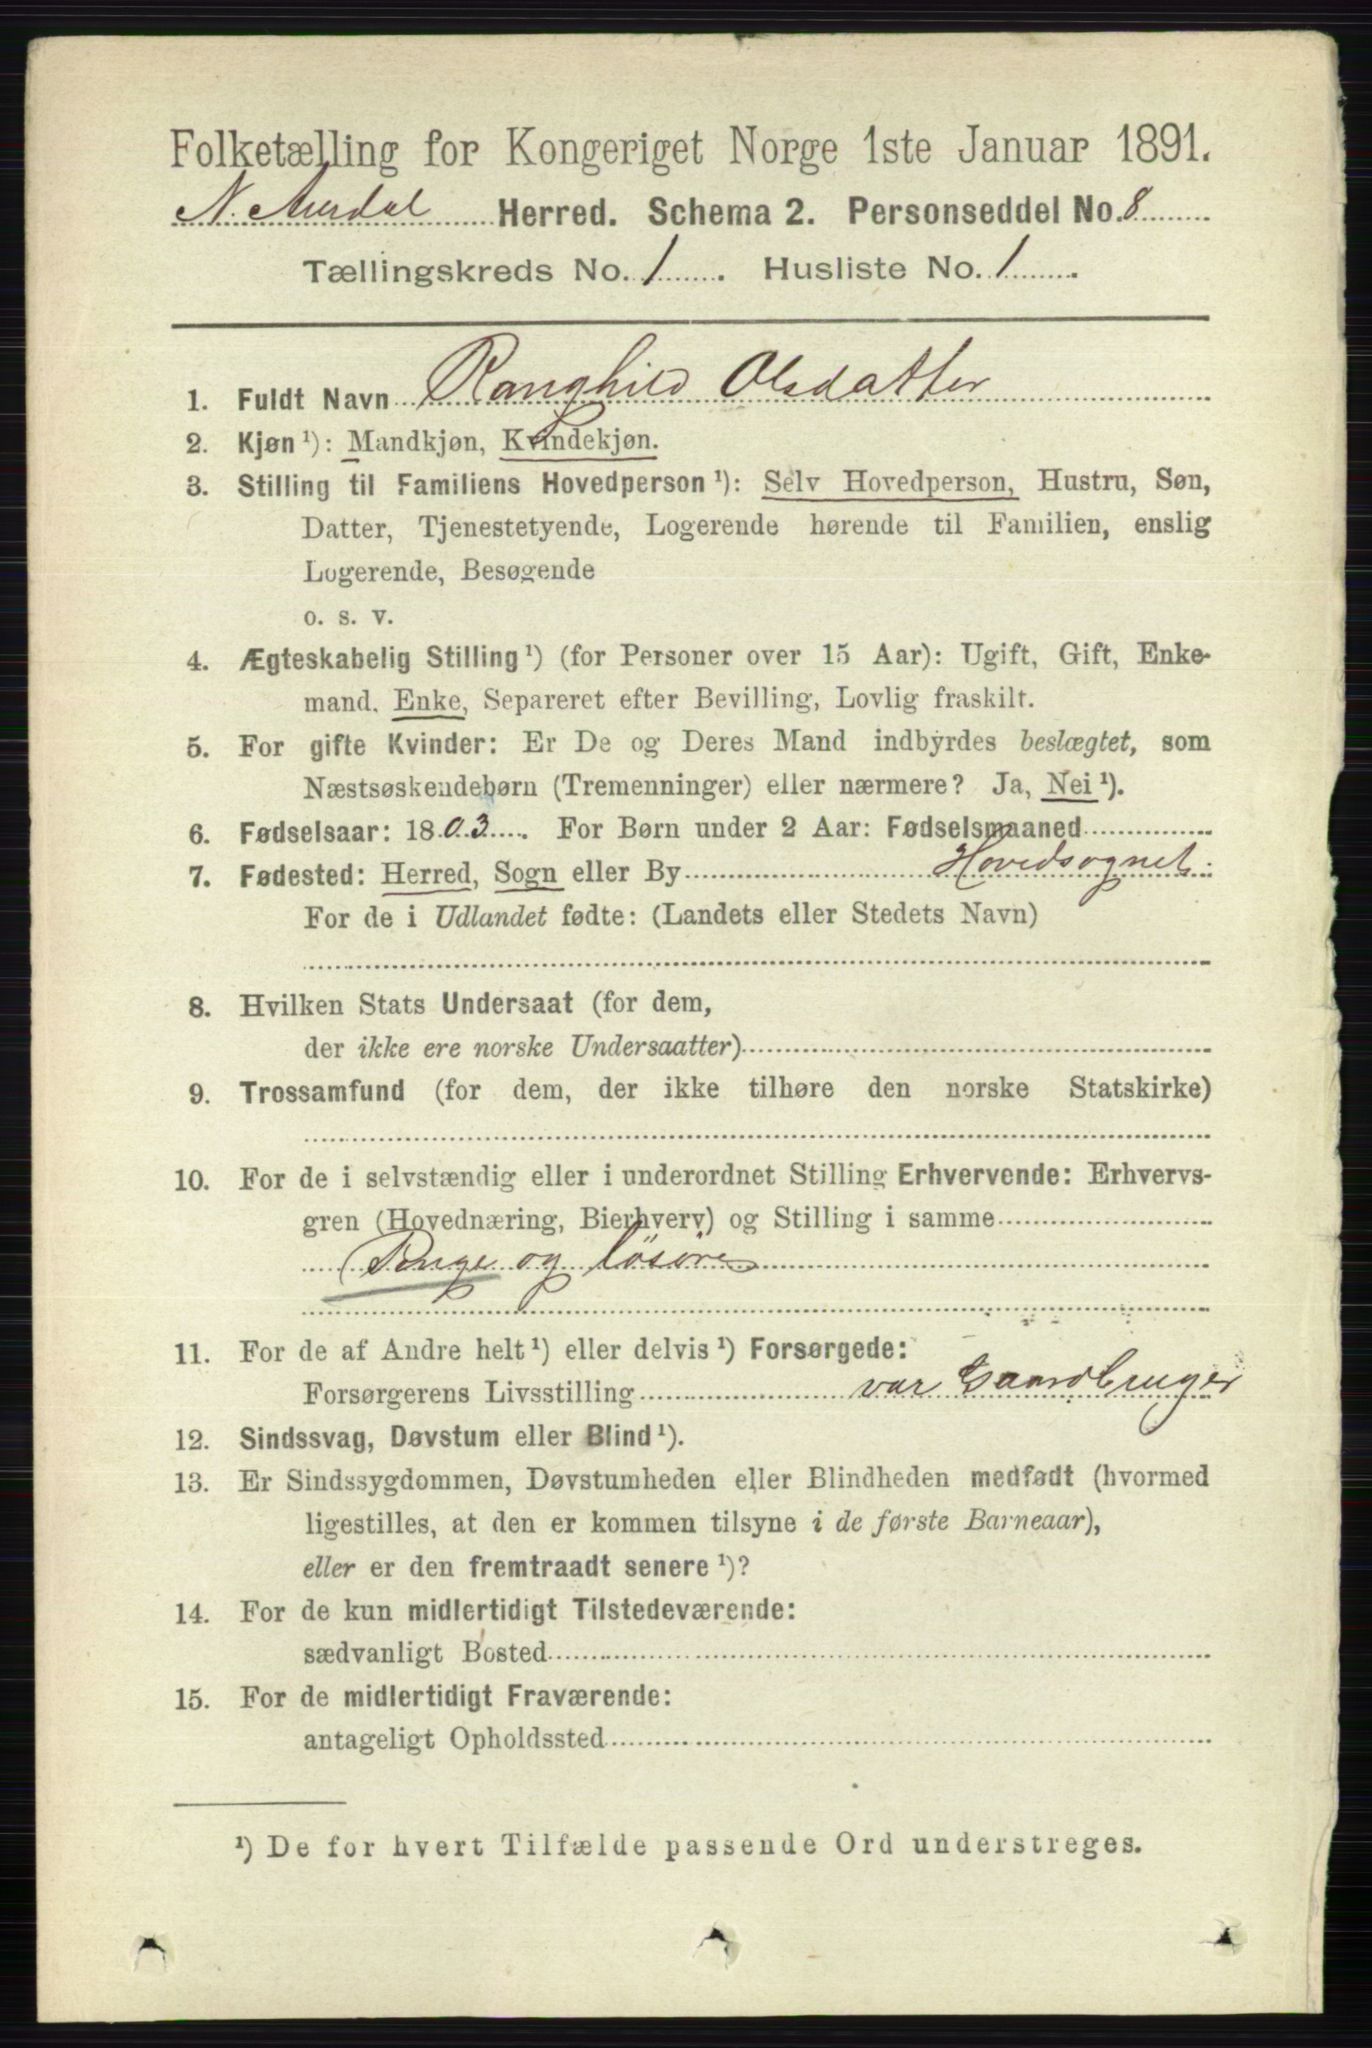 Folketælling for Kongeriget Norge 1ste Januar 1891.
N. Aurdal Herred. Schema 2. Personseddel No. 8
Tællingskreds No. 1. Husliste No. 1.
1. Fuldt Navn Ranghild Olsdatter
2. Kjøn ¹): Mandkjøn, Kvindekjøn.
3. Stilling til Familiens Hovedperson ¹): Selv Hovedperson, Hustru, Søn,
Datter, Tjenestetyende, Logerende hørende til Familien, enslig
Logerende, Besøgende
o. s. v.
4. Ægteskabelig Stilling ¹) (for Personer over 15 Aar): Ugift, Gift, Enke-
mand, Enke, Separeret efter Bevilling, Lovlig fraskilt.
5. For gifte Kvinder: Er De og Deres Mand indbyrdes beslægtet, som
Næstsøskendebørn (Tremenninger) eller nærmere? Ja, Nei ¹).
6. Fødselsaar: 1803. For Børn under 2 Aar: Fødselsmaaned
7. Fødested: Herred, Sogn eller By Hovedsognet.
For de i Udlandet fødte: (Landets eller Stedets Navn)
8. Hvilken Stats Undersaat (for dem,
der ikke ere norske Undersaatter)
9. Trossamfund (for dem, der ikke tilhøre den norske Statskirke)
10. For de i selvstændig eller i underordnet Stilling Erhvervende: Erhvervs-
gren (Hovednæring, Bierhverv) og Stilling i samme
Penge og løsøre
11. For de af Andre helt ¹) eller delvis ¹) Forsørgede:
Forsørgerens Livsstilling var Gaardbruger
12. Sindssvag, Døvstum eller Blind ¹).
13. Er Sindssygdommen, Døvstumheden eller Blindheden medfødt (hvormed
ligestilles, at den er kommen tilsyne i de første Barneaar),
eller er den fremtraadt senere ¹)?
14. For de kun midlertidigt Tilstedeværende:
sædvanligt Bosted
15. For de midlertidigt Fraværende:
antageligt Opholdssted
¹) De for hvert Tilfælde passende Ord understreges.